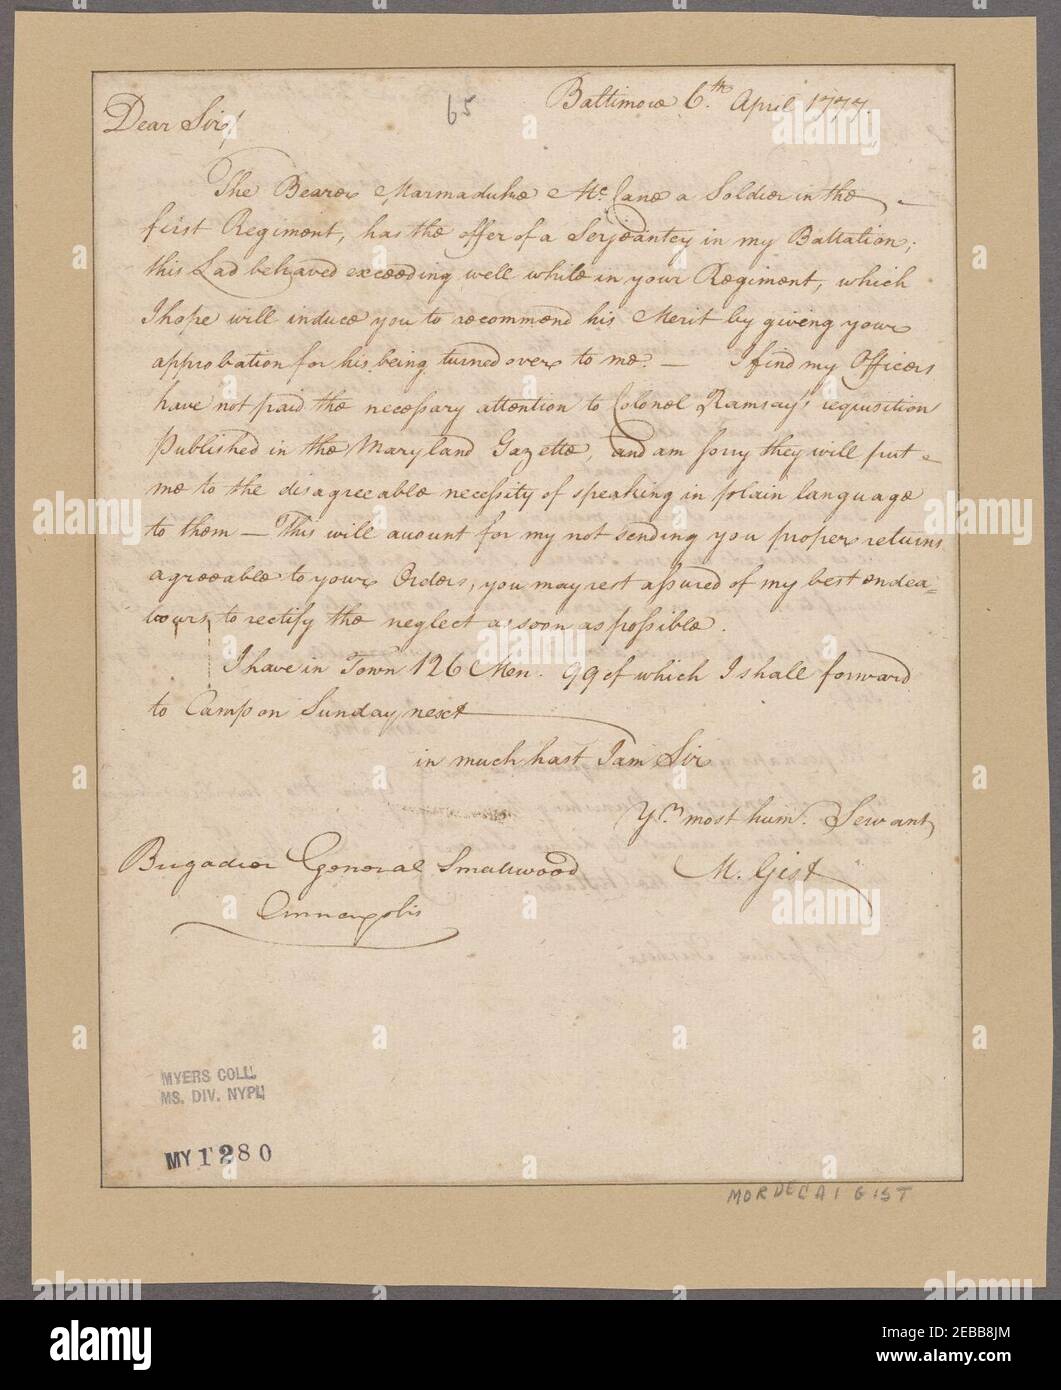 65
Baltimore 6.th April 1777.
Dear Sir/
The Bearer Marmaduke Mc. Cane a Soldier in the
first Regiment, has the offer of a Serjeantcy in my Battation;
this Lad behaved exceeding well while in your Regiment, which
I hope will induce you to recommend his Merit by giving your
approbation for his being turned over to me. — I find my Officers
have not paid the necessary attention to Colonel Ramsay's requisition
Published in the Maryland Gazette, and am sorry they will put
me to the disagreeable necessity of speaking in plain language
to them — This will account for my not sending you proper returns
agreeable to your Orders, you may rest assured of my best endea=
vours to rectify the neglect as soon as possible.
I have in Town 126 Men. 99 of which I shall forward
to Camp on Sunday next
in much hast I am Sir
Yr. most hum. Servant
M. Gist
Brigadier General Smallwood
Annapolis
MYERS COLL.
MS. DIV. NYPL
MY 1280
MORDECAI GIST
alamy
Image ID: 2EBB8JM
www.alamy.com